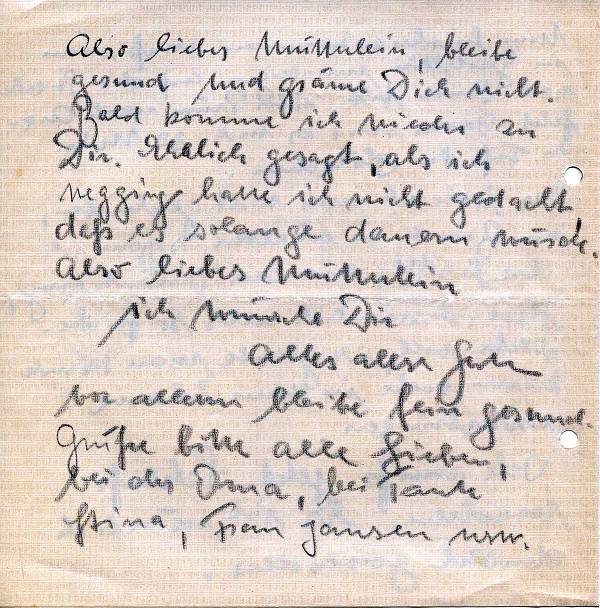 Also liebes Muttulein, bleibe
gesund und gräme Dich nicht.
Bald komme ich wieder zu
Dir. Ehrlich gesagt, als ich
wegging hatte ich nicht gedacht
daß es solange dauern würde.
Also liebes Muttulein
ich wünsche Dir
Alles alles Gute
vor allem bleibe fein gesund.
Grüße bitte alle Lieben,
bei der Oma, bei Tante
Stina, Frau Jansen usw.